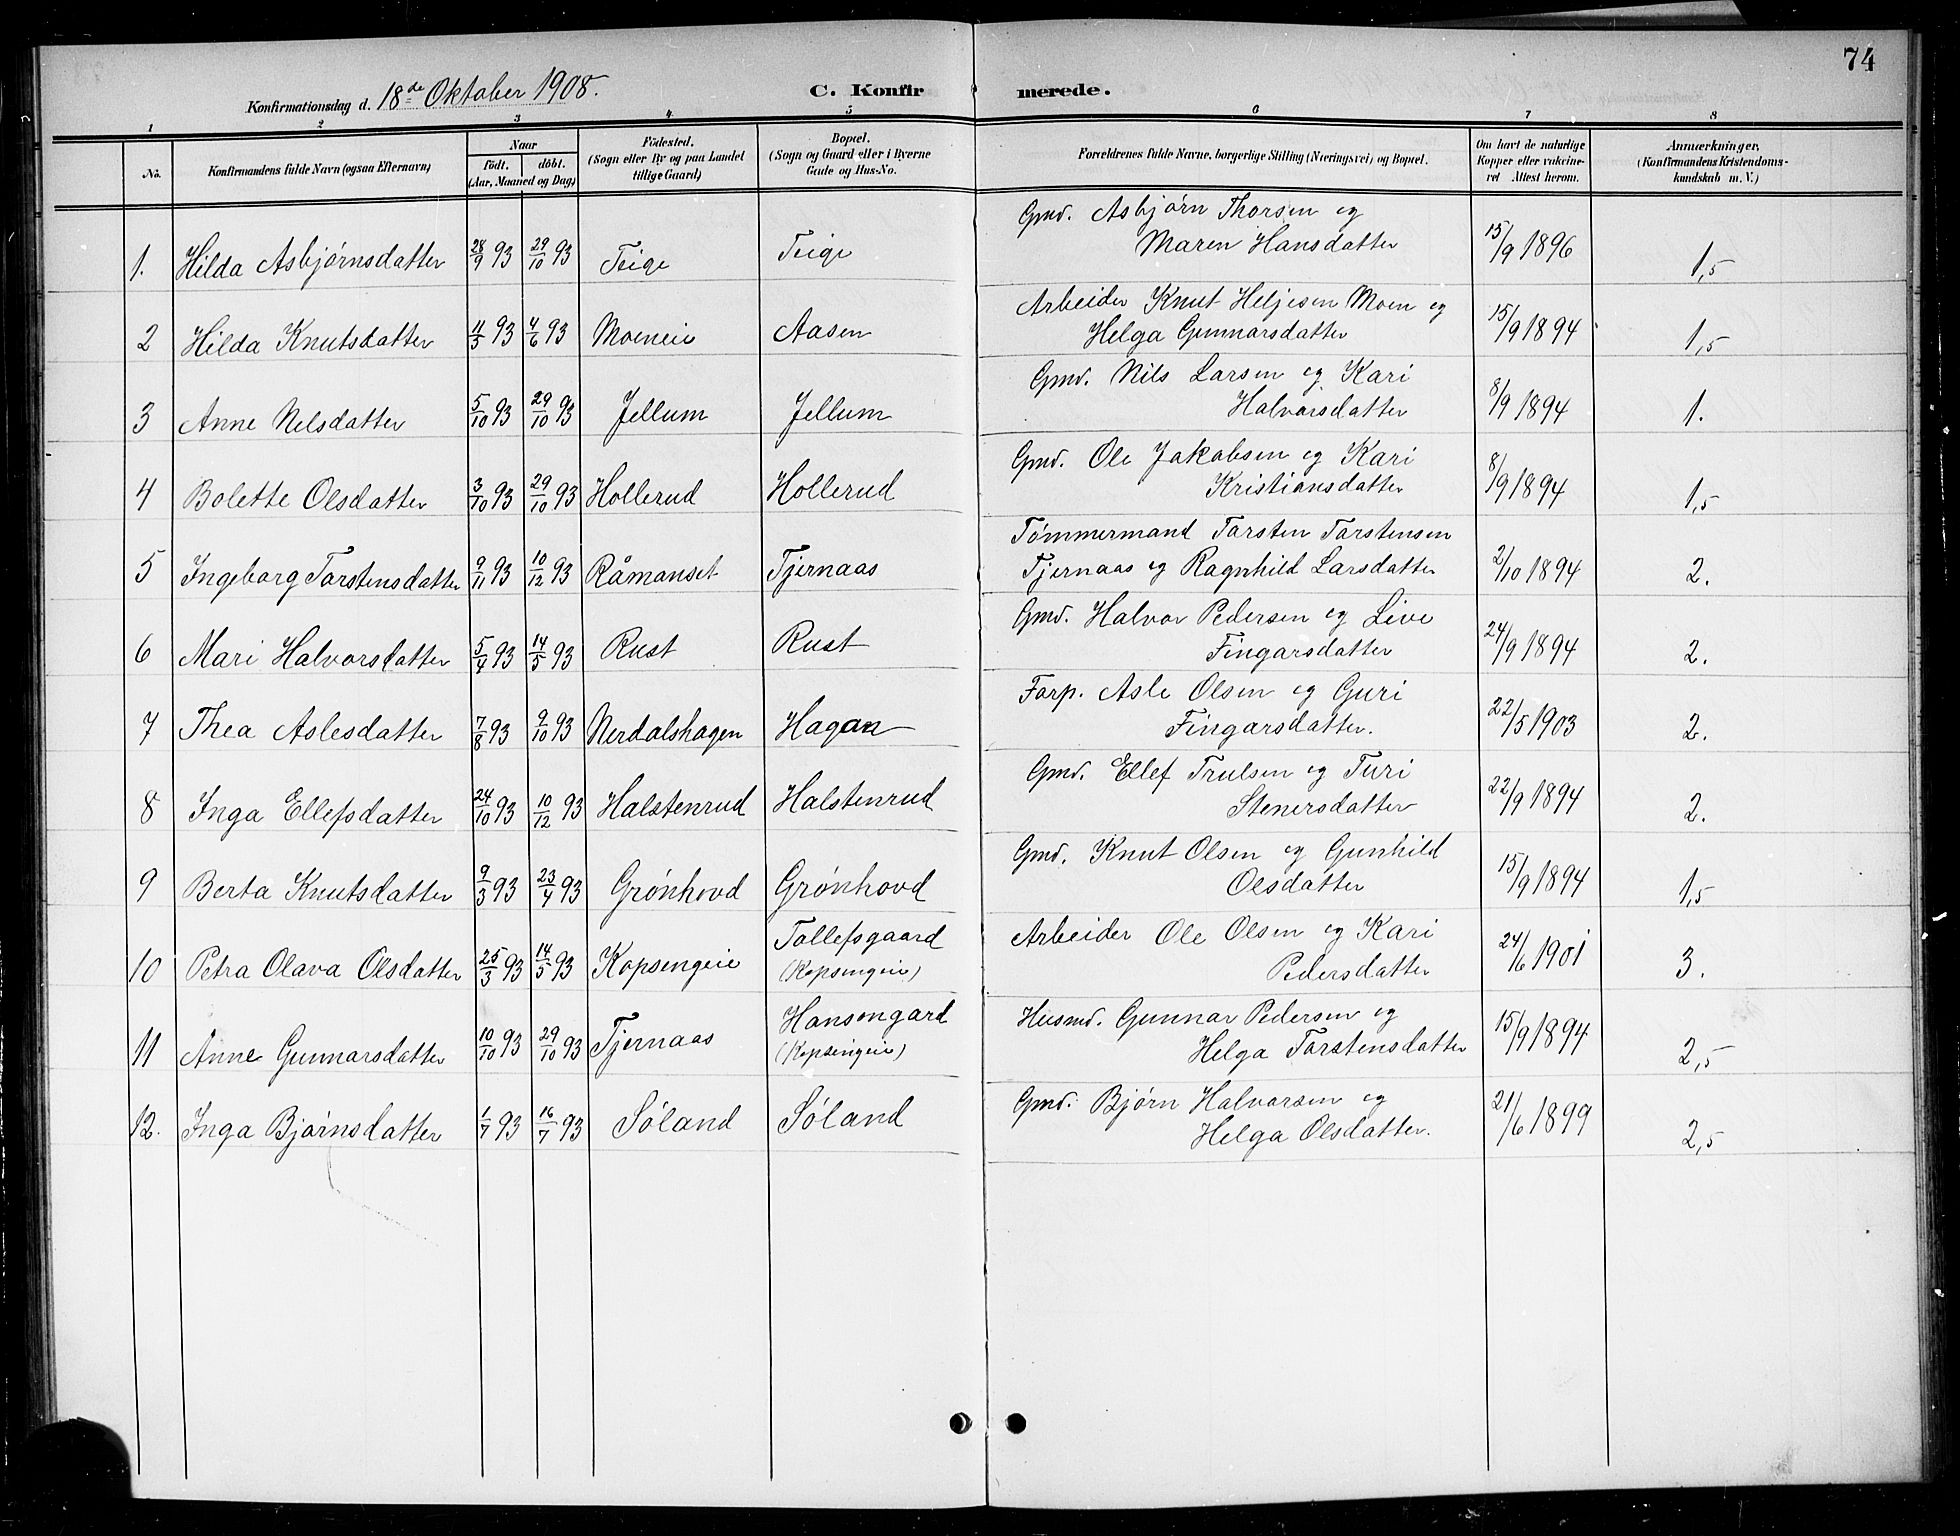 74
Konfirmationsdag d. 18de Oktober 1908.
C. Konfirmerede.
1 2 3 4. 5 6 7 8
No. Konfirmandens fulde Navn (ogsaa Efternavn) Naar født. døbt. (Aar, Maaned og Dag) Fødested. (Sogn eller By og paa Landet tillige Gaard) Bopæl. (Sogn og Gaard eller i Byerne Gade og Hus-No. Forældrenes fulde Navne, borgerlige Stilling (Næringsvei) og Bopæl. Om havt de naturlige Kopper eller vakcineret Attest herom. Anmærkninger, (Konfirmandens Kristendomskundskab m. V.)
1. Hilda Asbjørnsdatter 28/9 93 29/10 93 Teige Teige Gmd. Asbjørn Thorsen og Maren Hansdatter 15/9 1896 1,5
2 Hilda Knutsdatter 11/5 93 4/6 93 Moeneie Aasen Arbeider Knut Heljesen Moen og Helga Gunnarsdatter 15/9 1894 1,5
3 Anne Nelsdatter 5/10 93 29/10 93 Jellum Jellum Gmd. Nils Larsen og Kari Halvorsdatter 8/9 1894 1.
4 Bolette Olsdatter 3/10 93 29/10 93 Hollerud Hollerud Gmd. Ole Jakobsen og Kari Kristiansdatter 8/9 1894 1,5
5 Ingeborg Torstensdatter 9/11 93 10/12 93 Råmanset Tjernaas Tømmermand Torsten Torstensen Tjernaas og Ragnhild Larsdatter 2/10 1894 2.
6 Mari Halvorsdatter 5/4 93 14/5 93 Rust Rust Gmd. Halvor Pedersen og Live Fingarsdatter 24/9 1894 2.
7 Thea Aslesdatter 7/8 93 9/10 93 Nerdalshagen Hagan Forp. Asle Olsen og Guri Fingarsdatter. 22/5 1903 2.
8 Inga Ellefsdatter 24/10 93 10/12 93 Halstenrud Halstenrud Gmd. Ellef Trulsen og Turi Stenersdatter 22/9 1894 2.
9 Berta Knutsdatter 9/3 93 23/4 93 Grønhovd Grønhovd Gmd. Knut Olsen og Gunhild Olsdatter 15/9 1894 1,5
10 Petra Olava Olsdatter 25/3 93 14/5 93 Kopsengeie Tollefsgaard (Kopsengeie) Arbeider Ole Olsen og Kari Pedersdatter 24/6 1901 3.
11 Anne Gunnarsdatter 10/10 93 29/10 93 Tjernaas Hansengard (Kopsengeie) Husmd. Gunnar Pedersen og Helga Torstensdatter 15/9 1894 2,5
12. Inga Bjørnsdatter 1/7 93 16/7 93 Søland Søland Gmd. Bjørn Halvorsen og Helga Olsdatter. 21/6 1899 2,5